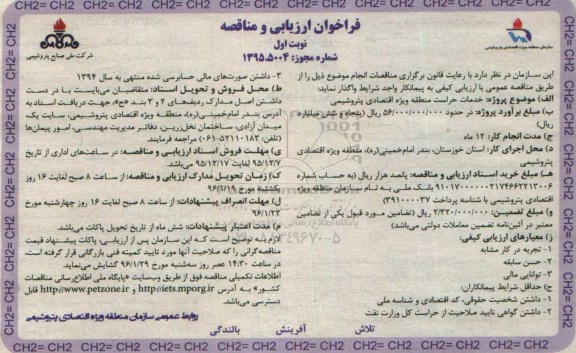 CH2= CH2 CH2= CH2 CH2= CH2 CH2= CH2 CH2= CH2 CH2= CH2 CH2= CH2
فراخوان ارزیابی و مناقصه
نوبت اول
شماره مجوز: ۱۳۹۵.۵۰۰۴
سازمان منطقه ویژه اقتصادی پتروشیمی
شرکت ملی صنایع پتروشیمی
این سازمان در نظر دارد با رعایت قانون برگزاری مناقصات انجام موضوع ذیل را از
طریق مناقصه عمومی با ارزیابی کیفی به پیمانکار واجد شرایط واگذار نماید:
الف) موضوع پروژه: خدمات حراست منطقه ویژه اقتصادی پتروشیمی
ب) مبلغ برآورد پروژه: در حدود ۵۶/۰۰۰/۰۰۰/۰۰۰ ریال (پنجاه و شش میلیارد
ریال)
ج) مدت انجام کار: ۱۲ ماه
د) محل اجرای کار: استان خوزستان، بندر امام‌خمینی(ره)، منطقه ویژه اقتصادی
پتروشیمی
هـ) مبلغ خرید اسناد ارزیابی و مناقصه: پانصد هزار ریال (به حساب شماره
۲۱۷۴۶۶۲۲۱۳۰۰۶ بانک ملی به نام سازمان منطقه ویژه
اقتصادی پتروشیمی با شناسه پرداخت
و) مبلغ تضمین: ۲/۳۲۰/۰۰۰/۰۰۰ ریال (تضامین مورد قبول یکی از تضامین
معتبر در آئین‌نامه تضمین معاملات دولتی می‌باشد)
ز) معیارهای ارزیابی کیفی:
۱- تجربه در کار مشابه
۲- حسن سابقه
۳- توانایی مالی
ح) حداقل شرایط پیمانکاران:
۱- داشتن شخصیت حقوقی، کد اقتصادی و شناسه ملی
۲- داشتن گواهی تایید صلاحیت از حراست کل وزارت نفت
۳- داشتن صورت‌های مالی حسابرسی شده منتهی به سال ۱۳۹۴
ط) محل فروش و تحویل اسناد: متقاضیان می‌بایست با در دست
داشتن اصل مدارک ردیف‌های ۲ و ۳ بند «ح»، جهت دریافت اسناد به
آدرس بندر امام‌خمینی(ره)، منطقه ویژه اقتصادی پتروشیمی، سایت یک،
میدان آزادی، ساختمان نخل‌زرین، دفاتر مدیریت مهندسی، امور پیمان‌ها
(تلفن: ۵۲۱۱۰۱۸۳-۰۶۱) مراجعه فرمایند.
ی) مهلت فروش اسناد ارزیابی و مناقصه: در ساعت‌های اداری از تاریخ
۹۵/۱۲/۷ لغایت ۹۵/۱۲/۱۷ می‌باشد
ک) زمان تحویل مدارک ارزیابی و مناقصه: از ساعت ۸ صبح لغایت ۱۶ روز
یکشنبه مورخ
ل) مهلت انصراف پیشنهادات: از ساعت ۸ صبح لغایت ۱۶ روز چهارشنبه مورخ
۹۶/۱/۲۳
م) مدت اعتبار پیشنهادات: شش ماه از تاریخ تحویل پاکات می‌باشد
لازم به توضیح است که این سازمان پس از ارزیابی، پاکات پیشنهاد قیمت
مناقصه‌گرانی را که صلاحیت آنها مورد تایید کمیته فنی بازرگانی قرار گرفته است،
در ساعت ۱۴:۳۰ عصر روز سه‌شنبه مورخ ۹۶/۱/۲۹ گشایش می‌نماید.
اطلاعات تکمیلی مناقصه فوق از طریق وب‌سایت «پایگاه ملی اطلاع‌رسانی مناقصات
کشور» به آدرس http://iets.mporg.ir و http://www.petzone.ir قابل
دسترسی می‌باشد.
روابط عمومی سازمان منطقه ویژه اقتصادی پتروشیمی
تلاش آفرینش بالندگی
CH2= CH2 CH2= CH2 CH2= CH2 CH2= CH2 CH2= CH2 CH2= CH2 CH2= CH2